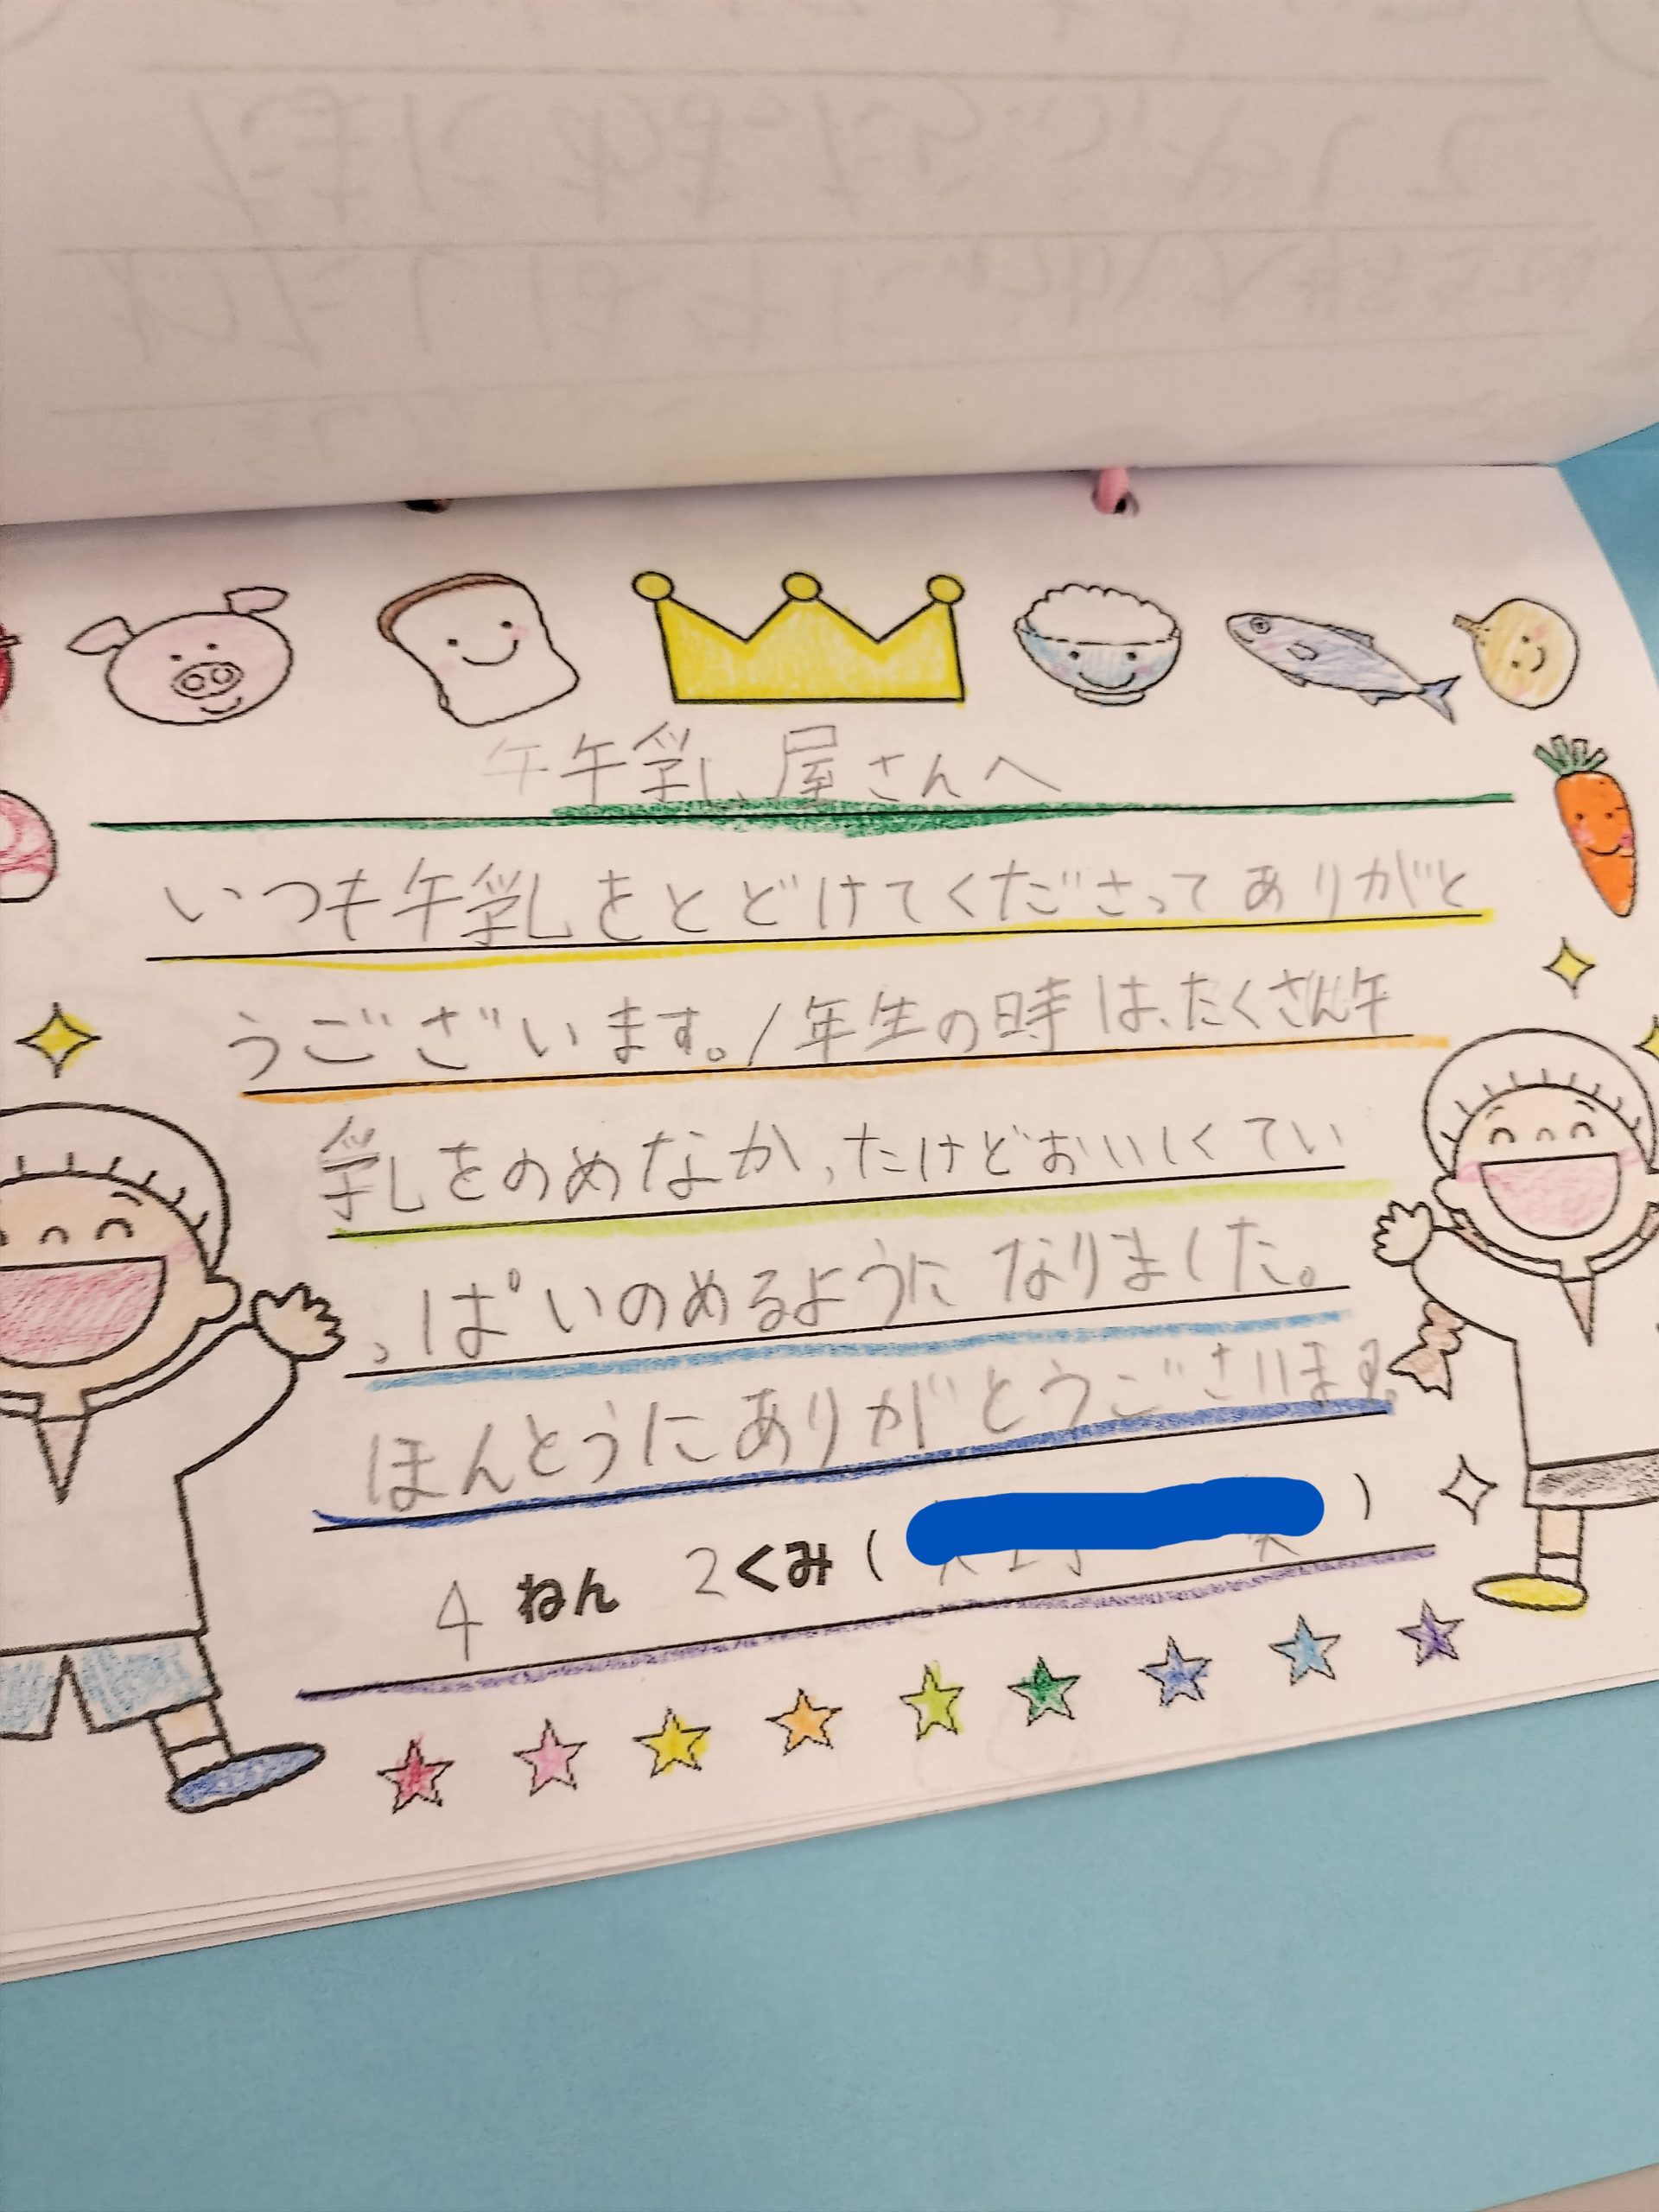 牛乳屋さんへ
いつも牛乳をとどけてくださってありがと
うございます。1年生の時は、たくさん牛
乳をのめなかったけどおいしくてい
っぱいのめるようになりました。
ほんとうにありがとうございます。
4ねん 2くみ( )